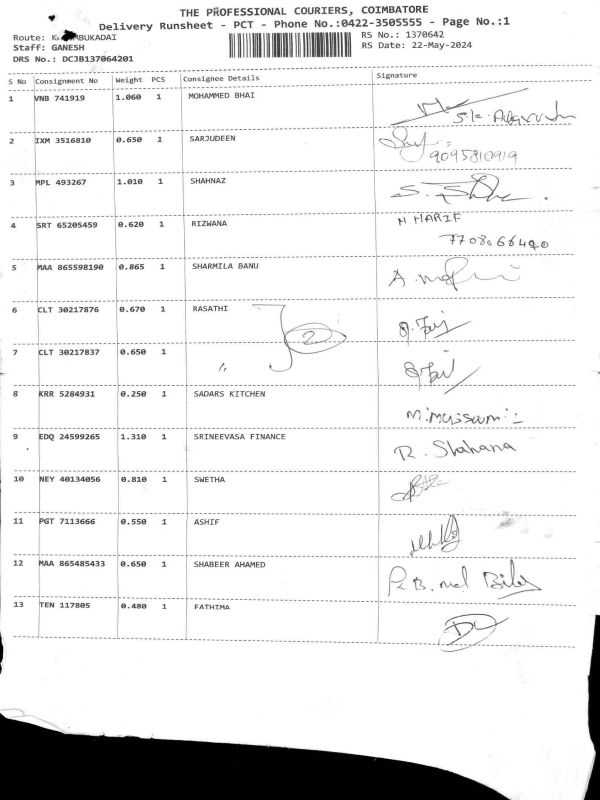 THE PROFESSIONAL COURIERS, COIMBATORE
Delivery Runsheet - PCT - Phone No.:0422-3505555 - Page No.:1
Route: BUKADAI RS No.: 1370642
Staff: GANESH RS Date: 22-May-2024
DRS No.: DCJB137064201
S No Consignment No Weight PCS Consignee Details Signature
1 VNB 741919 1.060 1 MOHAMMED BHAI
2 IXM 3516810 0.650 1 SARJUDEEN
9095810919
3 MPL 493267 1.010 1 SHAHNAZ
4 SRT 65205459 0.620 1 RIZWANA H HARIF
7708066490
5 MAA 865598190 0.865 1 SHARMILA BANU
6 CLT 30217876 0.670 1 RASATHI
2
7 CLT 30217837 0.650 1 "
8 KRR 5284931 0.250 1 SADARS KITCHEN
9 EDQ 24599265 1.310 1 SRINEEVASA FINANCE R. Shahana
10 NEY 40134056 0.810 1 SWETHA
11 PGT 7113666 0.550 1 ASHIF
12 MAA 865485433 0.650 1 SHABEER AHAMED
13 TEN 117805 0.480 1 FATHIMA